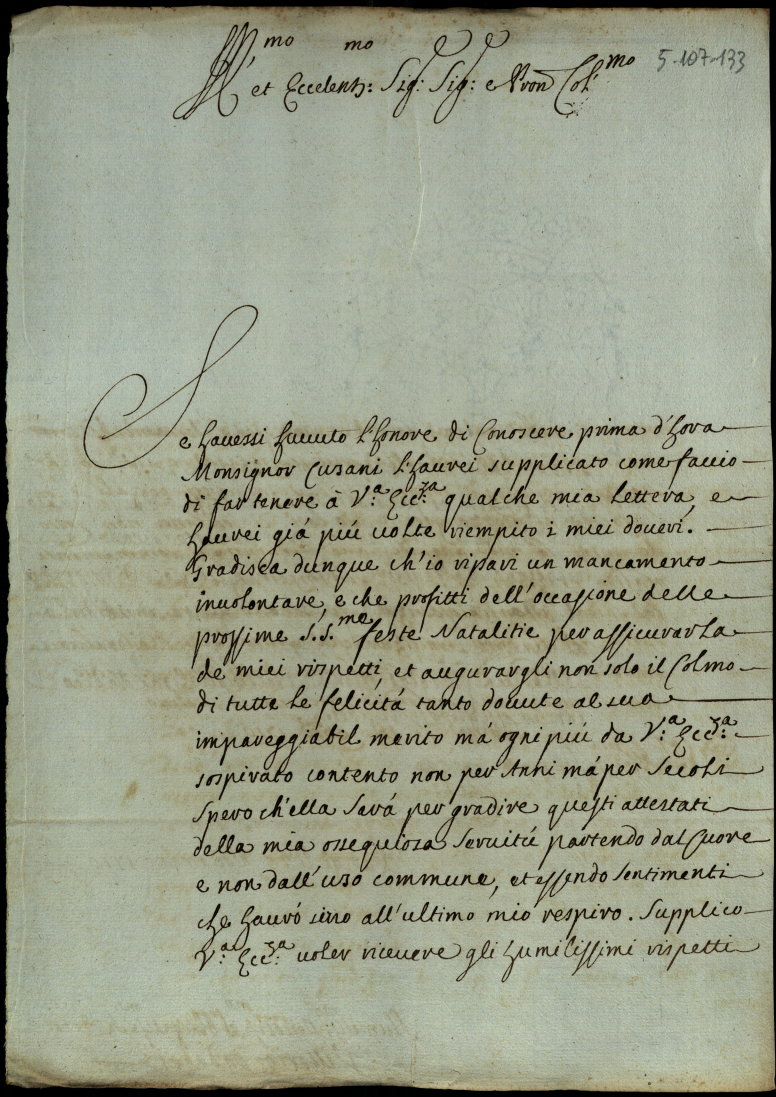 Ill.mo et Eccelent.mo Sig.r Sig.r e Pron Col.mo
5-107-133
Se havessi havuto l'honore di Conoscere prima d'hora
Monsignor Cusani l'haurei supplicato come faccio
di far tenere à V.a Ecc.za qualche mia lettera, e
haurei giá piú uolte riempito i miei doueri.
Gradisca dunque ch'io ripari un mancamento
inuolontare, e che profitti dell'occasione delle
prossime S.S.me feste Natalitie per assicurarla
de miei rispetti, et augurargli non solo il Colmo
di tutte le felicitá tanto douute al suo
impareggiabil merito má ogni piú da V.a Ecc.za
sospirato contento non per Anni má per Secoli
Spero ch'ella Sará per gradire questi attestati
della mia ossequiosa Seruitú partendo dal Cuore
e non dall'uso commune, et essendo Sentimenti
che hauró sino all'ultimo mio respiro. Supplico
V.a Ecc.za uoler riceuere gli humilissimi rispetti